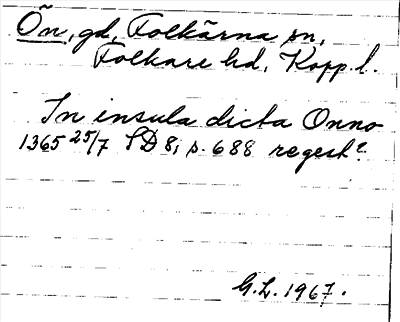 Ön, gd, Folkärna sn,
Folkare hd, Kopp. l.
In insula dicta Onno
1365 25/7 SD 8, s. 688 regest?
G.L. 1967.